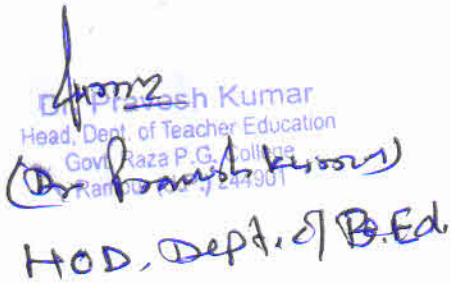 Dr. Pravesh Kumar
Head, Dept. of Teacher Education
Govt. Raza P.G. College
Rampur 244901
(Dr Pravesh Kumar)
HOD, Dept. of B.Ed.